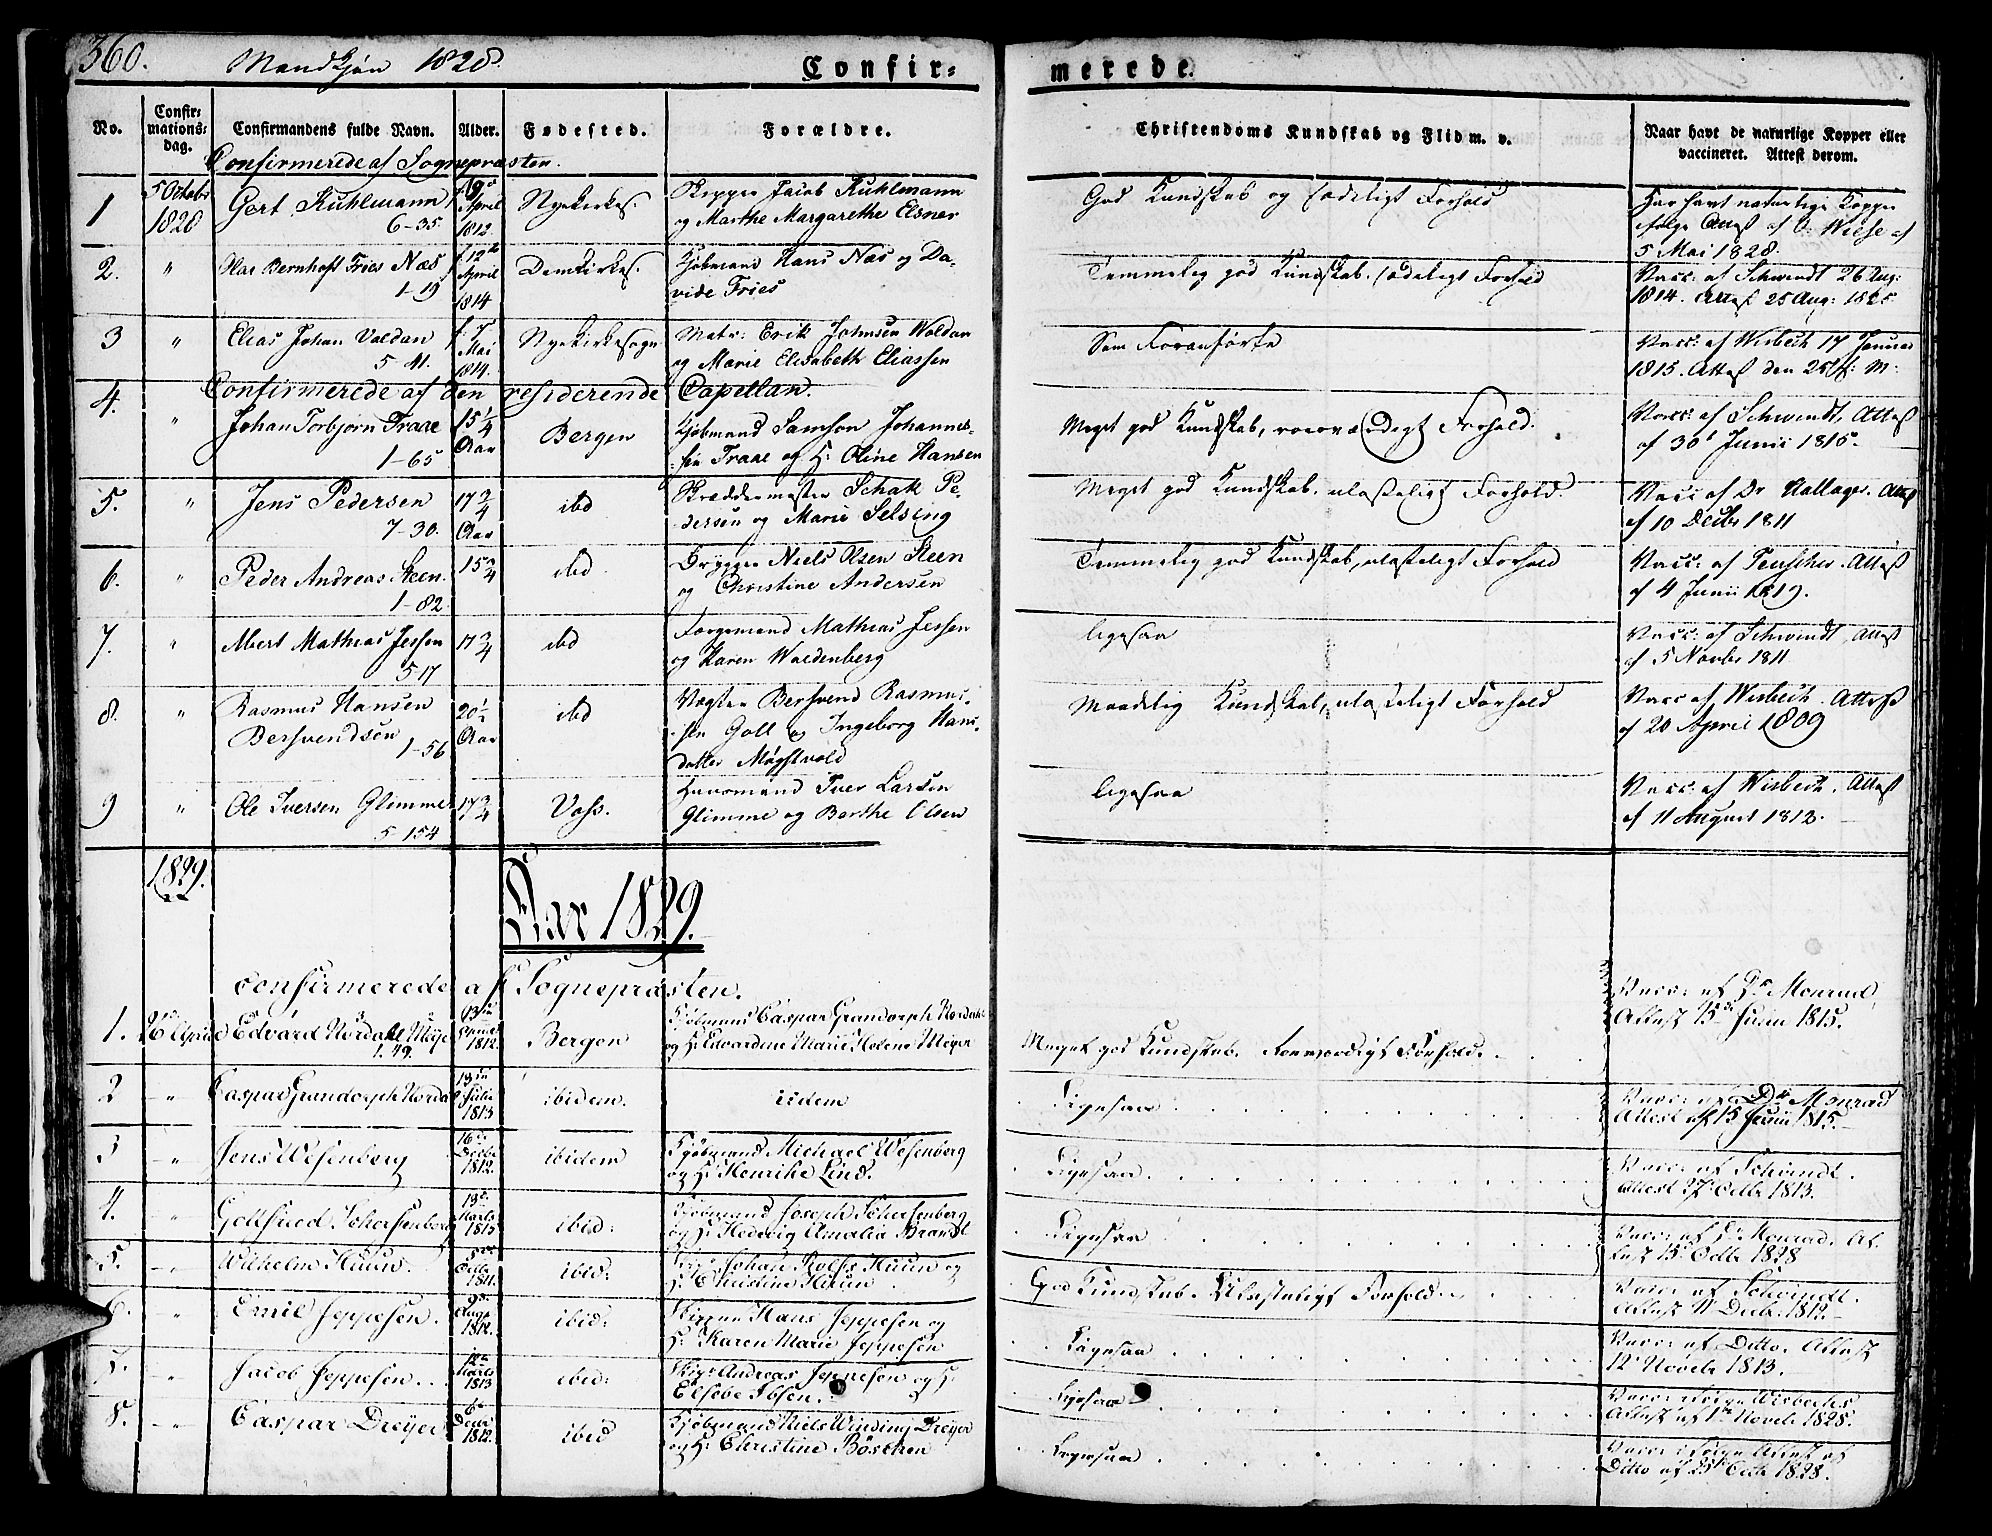 360. Mandkjøn 1828. Confir- merede.
No. Confir-mations-dag. Confirmandens fulde Navn. Alder. Fødested. Forældre. Christendoms Kundskab og Flid m. v. Naar havt de naturlige Kopper eller vaccineret. Attest derom.
Confirmerede af Sognepræsten.
1 5 Octobr 1828 Gert Kuhlmann 6-35. f. 9de April 1812. Nyekirkes. Skipper Jacob Kuhlmann
og Marthe Margarethe Elsner God Kundskab og sædeligt Forhold Har havt naturlige Kopper
ifølge Attest af O. Wiese af
5 Mai 1828.
2. " Olai Bernhoft Fries Næs 1-19 f. 12te April 1814 Domkirkes. Kjøbmand Hans Næs og Da-
vide Fries Temmelig god Kundskab. sædeligt Forhold Vacc: af Schwindt 26 Aug:
1814. Attest 25 Aug: 1825
3 " Elias Johan Valdan 5-41. f. 7 Mai 1814. Nyekirkesogn Matr: Erik Johnsen Woldan
og Marie Elisabeth Eliassen Som Foranførte Vacc: af Wisbech 17 Januar
1815. Attest den 25 M:
Confirmerede af den residerende Capellan.
4. " Johan Torbjørn Traae 1-65 15 1/4 Aar Bergen Kjøbmand Samson Johannes-
sen Traae og H: Oline Hansen Meget god Kundskab, roesværdigt Forhold. Vacc: af Schwindt, Attest
af 30t Junii 1815.
5. " Jens Pedersen 7-30. 17 3/4 Aar ibd Skræddermester Schak Pe-
dersen og Marie Selsing Meget god Kundskab. ulasteligt Forhold. Vacc af Dr Attest
af 10 Decbr 1811
6. " Peder Andreas Steen. 1-82. 15 3/4 ibd. Brygger Niels Olsen Steen
og Christine Andersen Temmelig god Kundskab, ulasteligt Forhold Vacc: af Teuscher. Attest
af 4 Junii 1819.
7. " Albert Mathias Jessen 517 17 3/4 ibd Færgemand Mathias Jessen
og Karen Woldenberg ligesaa Vacc: af Schwindt, Attest
af 5 Novbr 1811
8. " Rasmus Hansen
Bersvendsen 1-56 20 1/2 Aar ibd Vægter Bersvend Rasmus-
sen Goll og Ingeborg Hans-
datter Møgstvold Maadelig Kundskab, ulasteligt Forhold Vacc af Wisbech. Attest
af 20 April 1809
9 " Ole Iversen Glimme 5-154 17 3/4 Voss. Huusmand Iver Larsen
Glimme og Berthe Olsen ligesaa Vacc: af Wisbech. Attest
af 11 August 1812.
1829. Aar 1829.
Confirmerede af Sognepræsten.
1. Edvard Nordahl Meyer 1.49. 1812. Bergen Kjøbmand Caspar Grandorph Nordahl
og H: Edvardine Marie Helene Meyer Meget god Kundskab. Roesværdigt Forhold. Vacc: af Dr Monrad,
Attest 15de Junii 1815.
2 " Caspar Grandorph Nordahl 13de Julii 1813 ibidem. iidem Ligesaa Vacc: af Dr Monrad
Attest af 15 Junii 1815.
3 " Jens Wesenberg 16de Decbr 1812. ibidem Kjøbmand Michael Wesenberg
og H: Henrike Lind. Ligesaa Vacc: af Schwindt.
Attest 27 Octbr 1813.
4. " Gottfried Schersenberg 13de Marts 1813 ibid: Kjøbmand Joseph Schersenberg
og H: Hedevig Amalia Brandt Ligesaa Vacc: af Dr Monrad. At-
test 15 Octbr 1828
5. " Wilhelm Huun. Octbr 1811. ibid: Skipr: Johan Rolfs Huun og
H: Christine Huun God Kundskab. Ulasteligt Forhold. Vacc: af Schwindt.
Attest 11 Decbr. 1812.
6. " Emil Jeppesen. 9de Augs 1812. ibid: Skipper Hans Jeppesen og
H: Karen Marie Jeppesen Ligesaa Vacc: af Ditto. Attest
12 Novbr 1813.
7. " Jacob Jeppesen. Marts 1813 ibid: Skipr: Andreas Jeppesen og H:
Elsebe Ibsen. Ligesaa Vacc: ifølge Wisbechs
Attest af 1ste Novbr 1828.
8. " Caspar Dreyer 6te Decbr 1812. ibid Kjøbmand Niels Winding Dreyer
og H: Christine Böschen Ligesaa Vacc: ifølge Attest af
Ditto af 25 Octbr 1828.